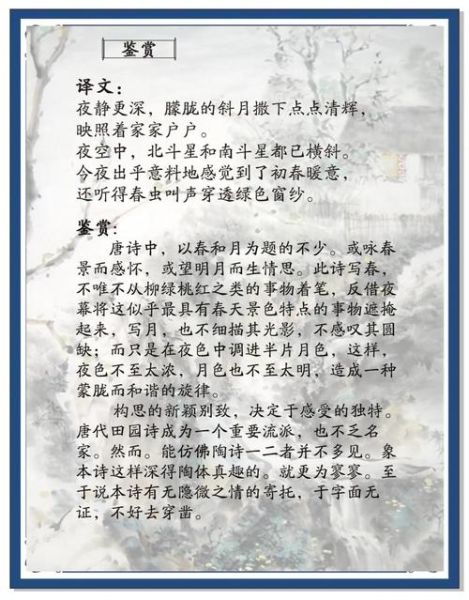 鉴赏
译文：
夜静更深，朦胧的斜月撒下点点清辉，
映照着家家户户。
夜空中，北斗星和南斗星都已横斜。
今夜出乎意料地感觉到了初春暖意，
还听得春虫叫声穿透绿色窗纱。
鉴赏：
唐诗中，以春和月为题的不少。或咏春
景而感怀，或望明月而生情思。此诗写春，
不唯不从柳绿桃红之类的事物着笔，反借夜
幕将这似乎最具有春天景色特点的事物遮掩
起来，写月，也不细描其光影，不感叹其圆
缺；而只是在夜色中调进半片月色，这样，
夜色不至太浓，月色也不至太明，造成一种
蒙胧而和谐的旋律。
构思的新颖别致，决定于感受的独特。
唐代田园诗成为一个重要流派，也不乏名
家。然而。能仿佛陶诗一二者并不多见。象
本诗这样深得陶体真趣的。就更为寥寥。至
于说本诗有无隐微之情的寄托，于字面无
证，不好去穿凿。